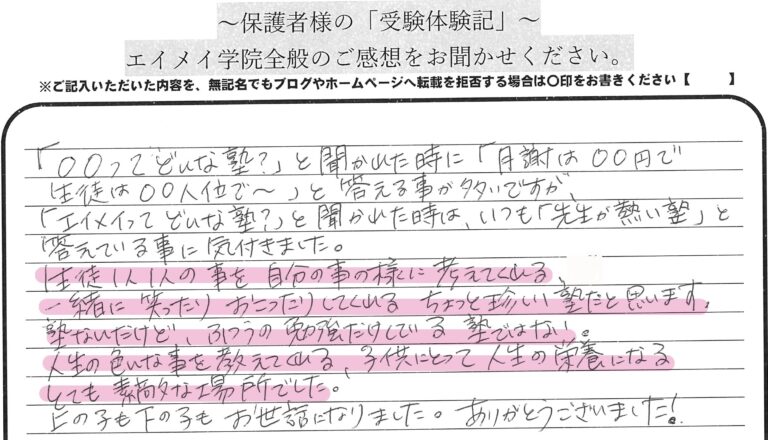 ～保護者様の「受験体験記」～
エイメイ学院全般のご感想をお聞かせください。
※ご記入いただいた内容を、無記名でもブログやホームページへ転載を拒否する場合は〇印をお書きください【　　　】
「〇〇ってどんな塾？」と聞かれた時に「月謝は〇〇円で
生徒は〇〇人位で～」と答える事が多いですが、
「エイメイってどんな塾？」と聞かれた時は、いつも「先生が熱い塾」と
答えている事に気付きました。
生徒1人1人の事を自分の事の様に考えてくれる、
一緒に笑ったりおこったりしてくれるちょっと珍しい塾だと思います。
塾ないだけど、ふつうの勉強だけしている塾ではない。
人生の色いな事を教えてくれる、子供にとって人生の栄養になる
とても素敵な場所でした。
上の子も下の子もお世話になりました。ありがとうございました！